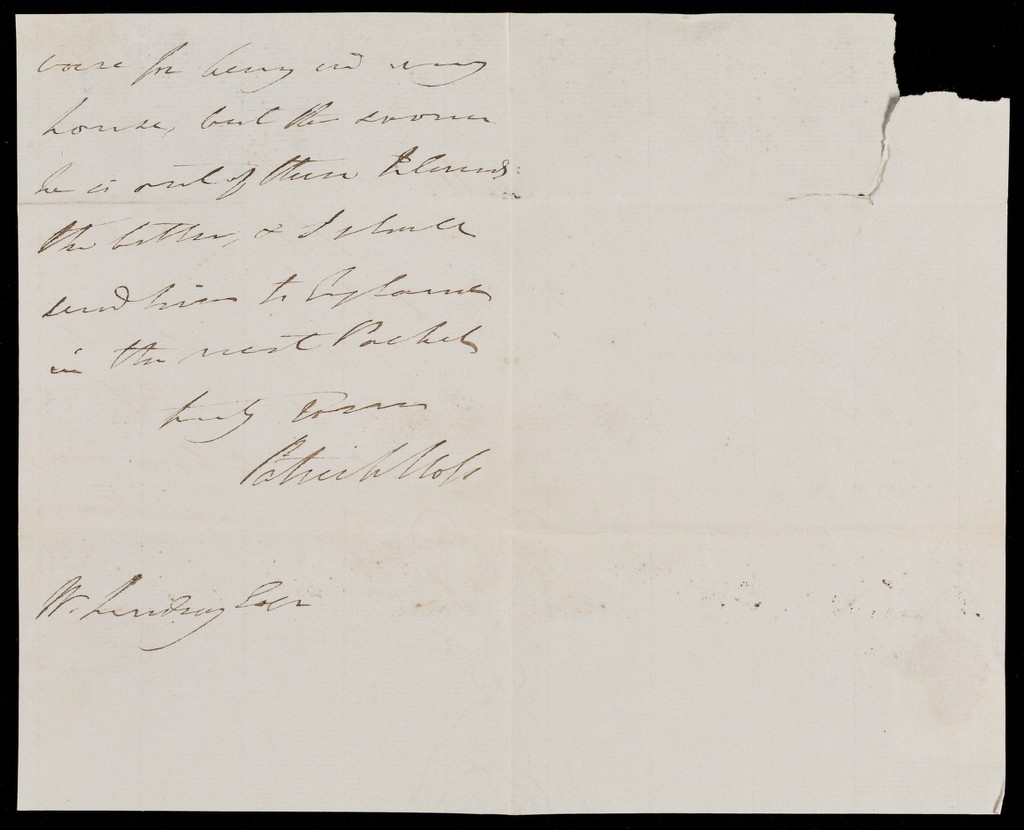 worse for being in my
house, but the sooner
he is out of these Islands
the better, & I shall
send him to England
in the next Packet
truly Yours
Patrick Ross
W. Lindsay Esqr